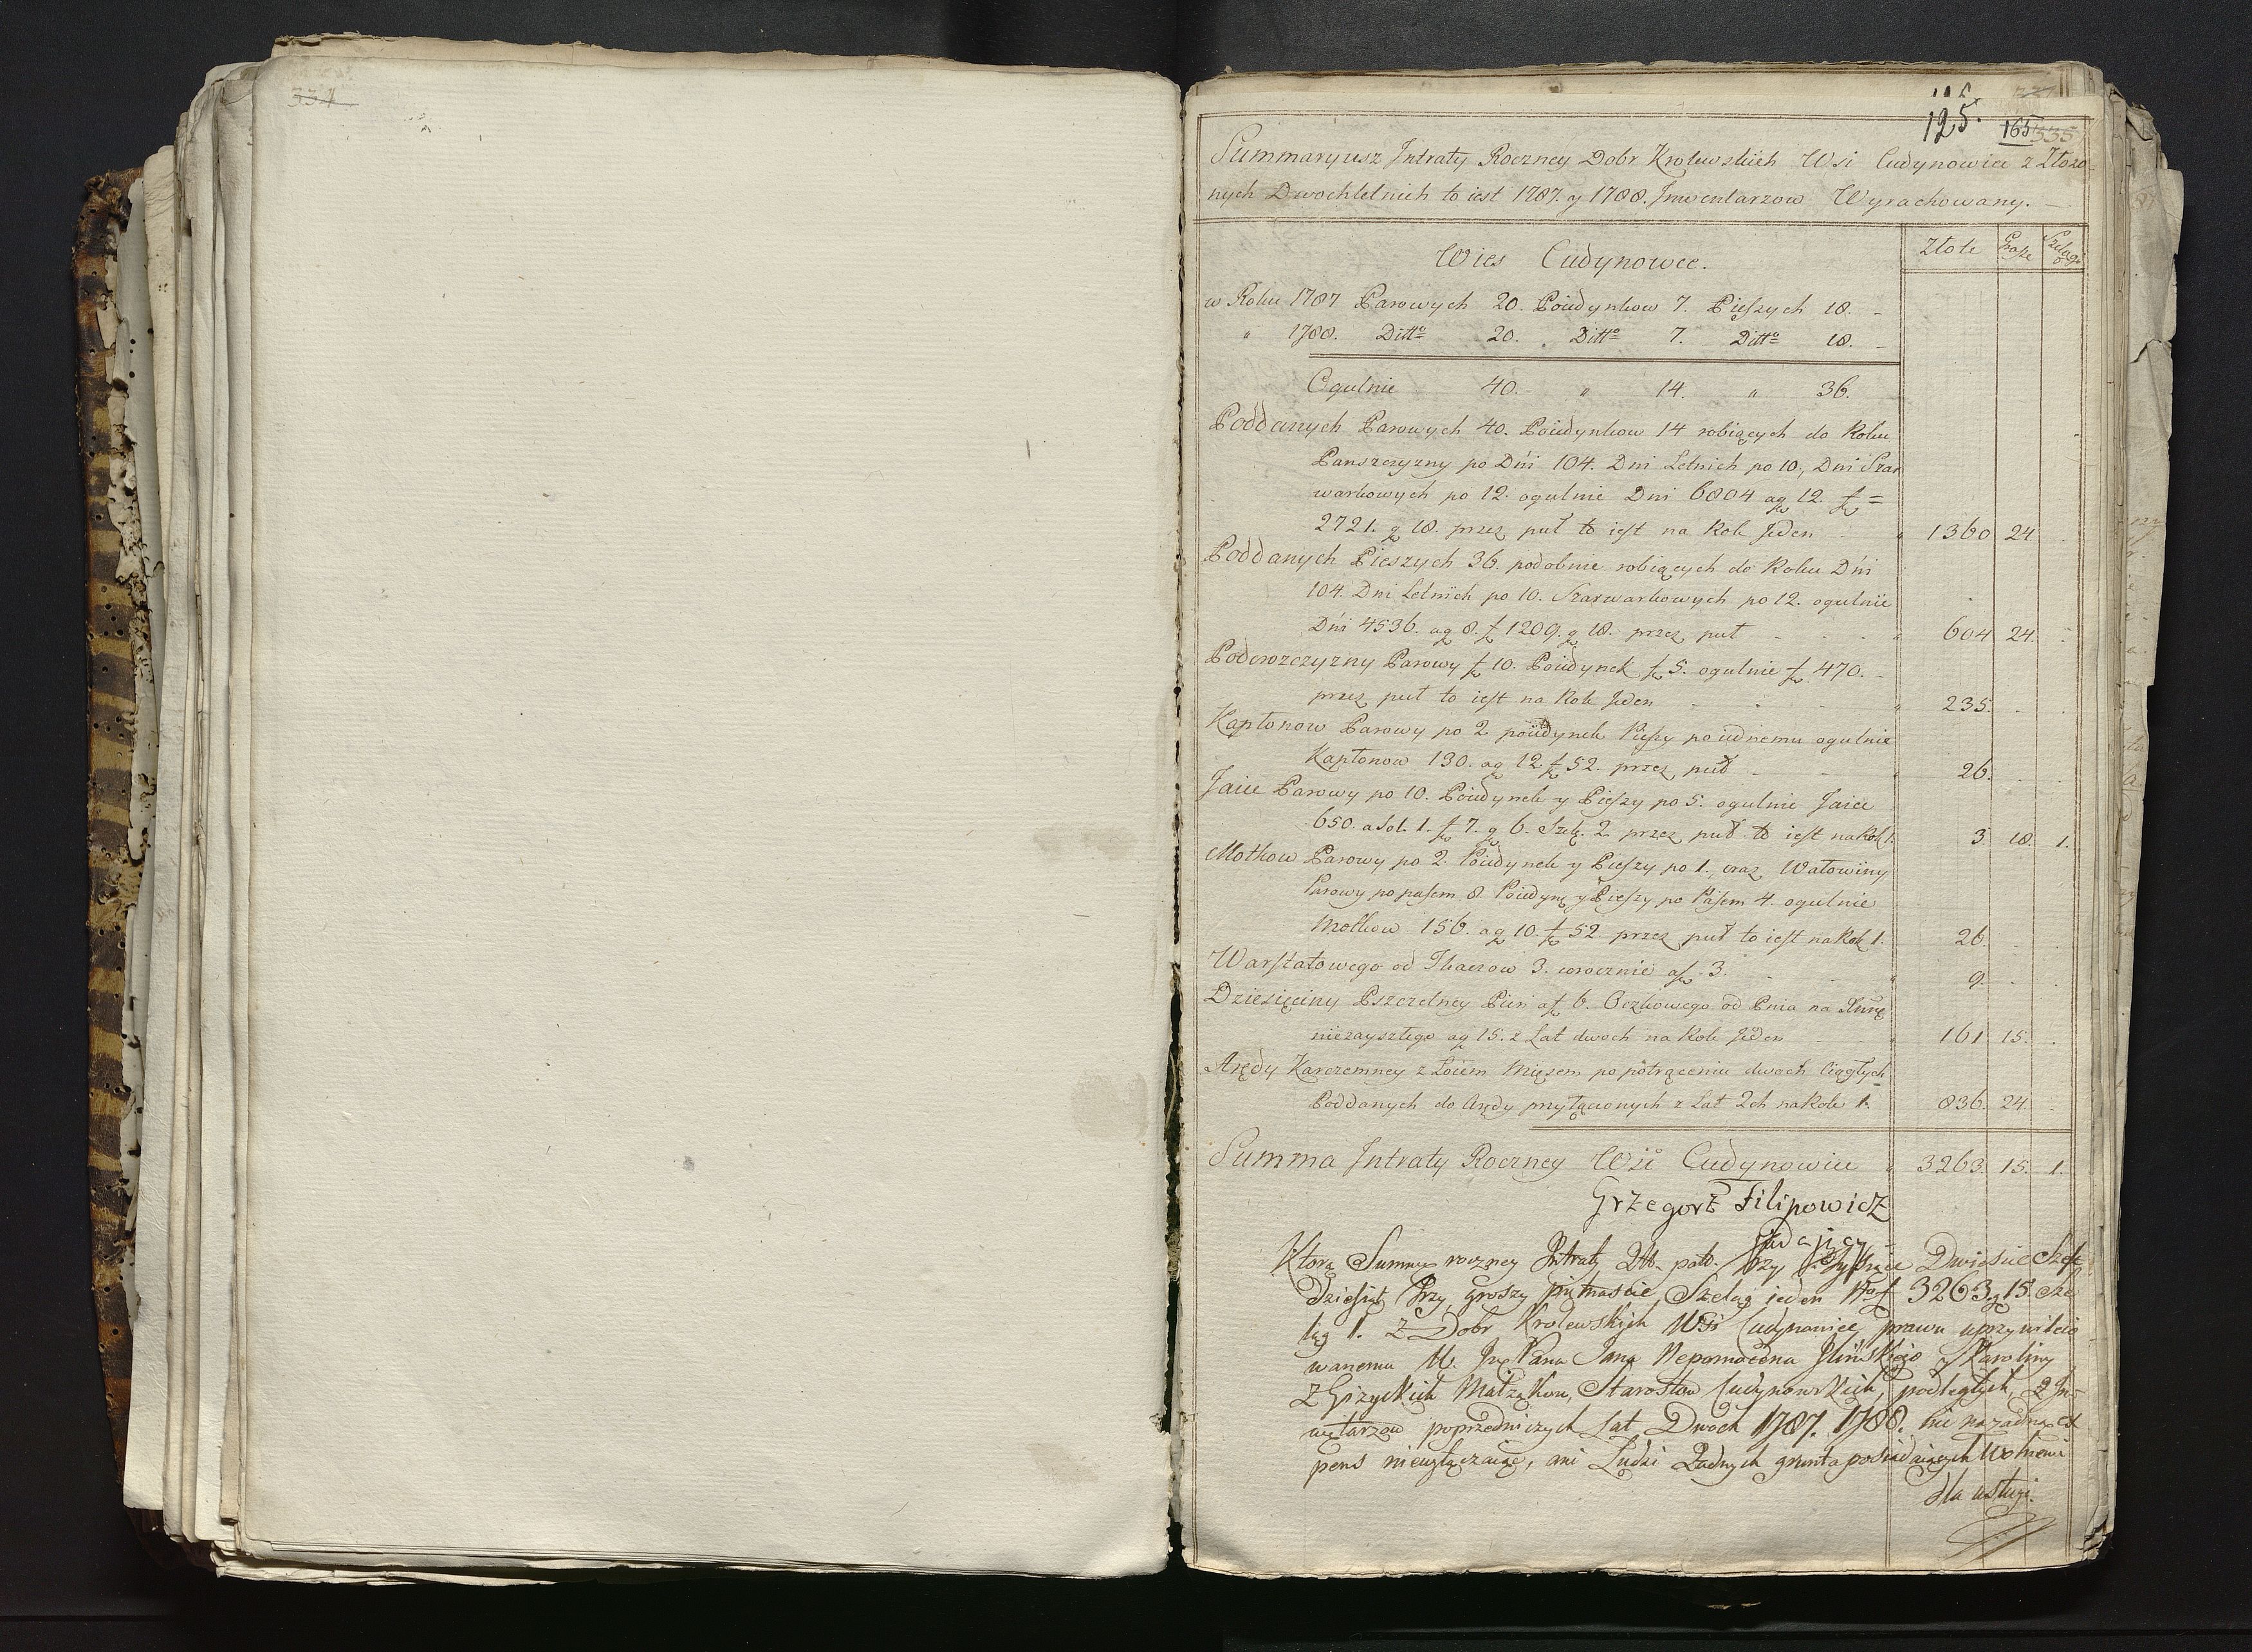 334
125.
165 335
Summaryusz Intraty Roczney Dobr Krolewskich Wsi Cudynowiec z Złożo
nych Dwochletnich to iest 1787. y 1788. Inwentarzow Wyrachowany. —
Złote Grosze Szelągi
Wies Cudynowce.
w Roku 1787 Parowych 20. Poiedynkow 7. Pieszych 18. -
" 1788. Ditto 20. Ditto 7. Ditto 18. -
Ogulnie 40. " 14. " 36.
Poddanych Parowych 40. Poiedynkow 14 robiących do Roku
Panszczyzny po Dni 104. Dni Letnich po 10, Dni Szar
warkowych po 12. ogulnie Dni 6804 ag 12. f =
2721. g 18. przez puł to iest na Rok Jeden " 1360 24.
Poddanych Pieszych 36. podobnie robiących do Roku Dni
104. Dni Letnich po 10. Szarwarkowych po 12. ogulnie
Dni 4536. ag 8. f 1209. g 18. przez puł - - - " 604 24.
Podorozczyzny Parowy f 10. Poiedynek f 5. ogulnie f 470. -
przez puł to iest na Rok Jeden - - - " 235.
Kapłonow Parowy po 2 poiedynek Pieszy po iednemu ogulnie
Kapłonow 130. ag 12. f 52. przez puł - - " 26.
Jaiec Parowy po 10. Poiedynek y Pieszy po 5. ogulnie Jaiec
650. a Sol. 1. f 7. g 6. Szel. 2. przez puł to iest na Rok 1. 3 18. 1.
Motkow Parowy po 2. Poiedynek y Pieszy po 1., oraz Watowiny
Parowy po pasem 8. Poiedyn. y Pieszy po Pasem 4. ogulnie
Motkow 156. ag 10. f 52 przez puł to iest na Rok 1. 26.
Warsztatowego od Tkaczow 3. corocznie af 3. - - " 9.
Dziesięciny Pszczelney Pien af 6. Oczkowego od Pnia na
niezayszłego ag 15. z Lat dwoch na Rok Jeden - - " 161 15.
Arędy Karczemney z Łoiem Mięsem po potrąceniu dwoch Ciągłych
Poddanych do Arędy przyłączonych z Lat 2ch na Rok 1. 836. 24.
Summa Intraty Roczney Wsi Cudynowiec " 3263. 15. 1.
Grzegorz Filipowicz
Ktorą Summę roczney Intraty Trzy Tysiące Dwieście Sześć
dziesiąt Trzy, groszy piętnaście, Szeląg ieden 3263 g 15 Sze
ląg 1. Z Dobr Krolewskich Wsi Cudynowiec prawu uprzywileio
wanemu Pana Jana Nepomocena Ilińskiego y Karoliny
z Giżyckich Małżąkow, Starostow Cudynowskich podległych, z In=
wętarzow poprzedniczych Lat Dwoch 1787. 1788. nic na żadną ex
pens niewyłączaiąc, ani Ludzi Żadnych grunta posiadaiących Wolnemi
dla usługi.